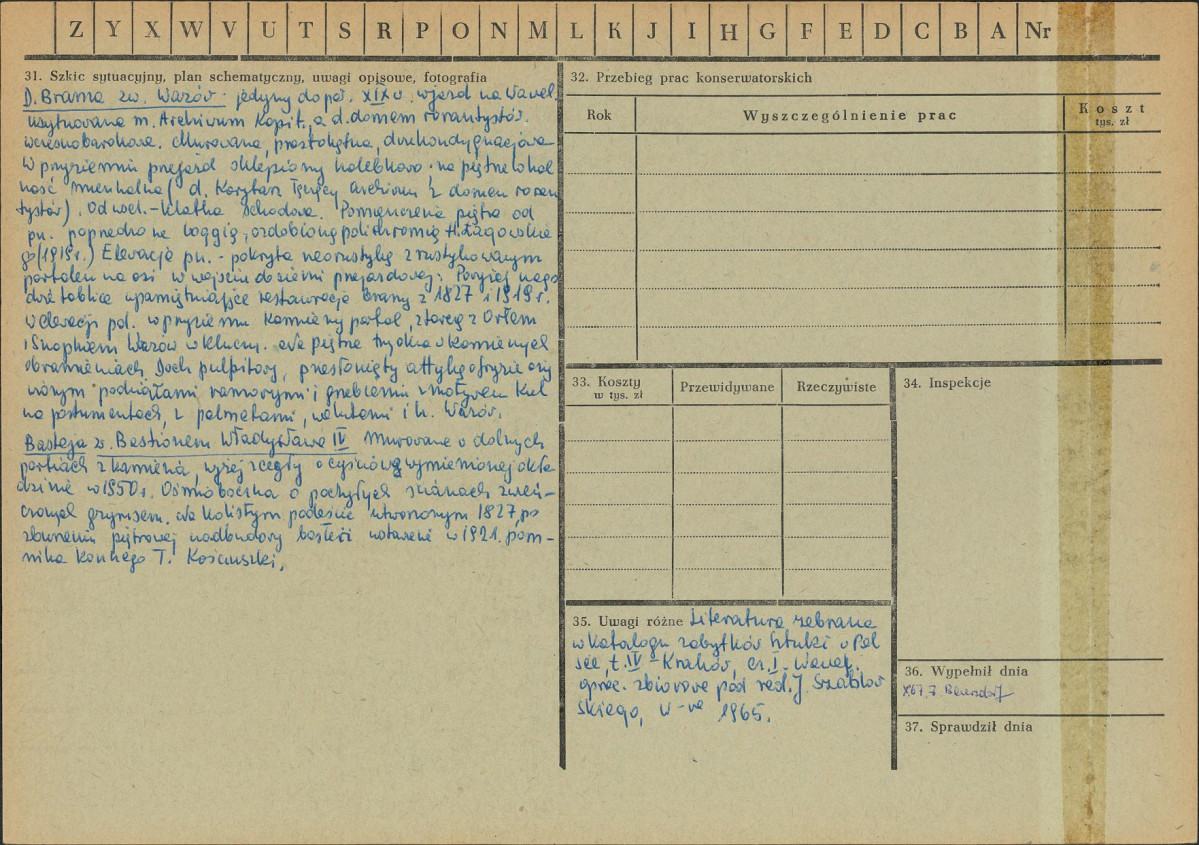 Z Y X W V U T S R P O N M L K J I H G F E D C B A Nr
31. Szkic sytuacyjny, plan schematyczny, uwagi opisowe, fotografia
D. Brama zw. Wazów - jedyny do poł. XIX w. wjazd na Wawel
usytuowana m. Archiwum Kapit. a d. domem rorantystów.
wczesnobarokowa. Murowana, prostokątna, dwukondygnacjowa
W przyziemiu przejazd sklepiony kolebkowo; na piętrze lokal
ność mieszkalna (d. Korytarz łączący archiwum z domem roran
tystów). Od wsch. - klatka schodowa. Pomieszczenie piętra od
pn. poprzedzone loggią, ozdobioną polichromią H.
(1919 r.) Elewacja pn. - pokryta neorustyką z rustykowanym
portalem na osi w wejściu do sieni przejazdowej. Powyżej
dwie tablice upamiętniające restaurację bramy z 1827 i 1919 r.
W elewacji pd. w przyziemiu kamienny portal, z tarczą z Orłem
i Snopkiem Wazów w kluczu. Na piętrze trzy okna w kamiennych
obramieniach. Dach pulpitowy, przesłonięty attyką o fryzie
podziałami ramowymi i grzebieniu z motywem kul
na postumentach, z palmetami, wolutami i h. Wazów.
Basteja zw. Bastionem Władysława IV Murowana w dolnych
partiach z kamienia, wyżej z cegły o wymienionej okła
dzinie w 1950 r. Ośmioboczna o pochyłych ścianach zwień-
czonych gzymsem. Na kolistym podeście utworzonym 1827 po
zburzeniu piętrowej nadbudowy bastei ustawienie w 1921. pom-
nika konnego T. Kościuszki.
32. Przebieg prac konserwatorskich
Rok Wyszczególnienie prac Koszt
tys. zł
33. Koszty
w tys. zł Przewidywane Rzeczywiste
34. Inspekcje
35. Uwagi różne Literatura zebrana
w Katalogu zabytków Sztuki w Pol
sce, t. IV - Kraków, cz. I - Wawel.
oprac. zbiorowe pod red. J. Szablow
skiego, W-wa 1965.
36. Wypełnił dnia
37. Sprawdził dnia